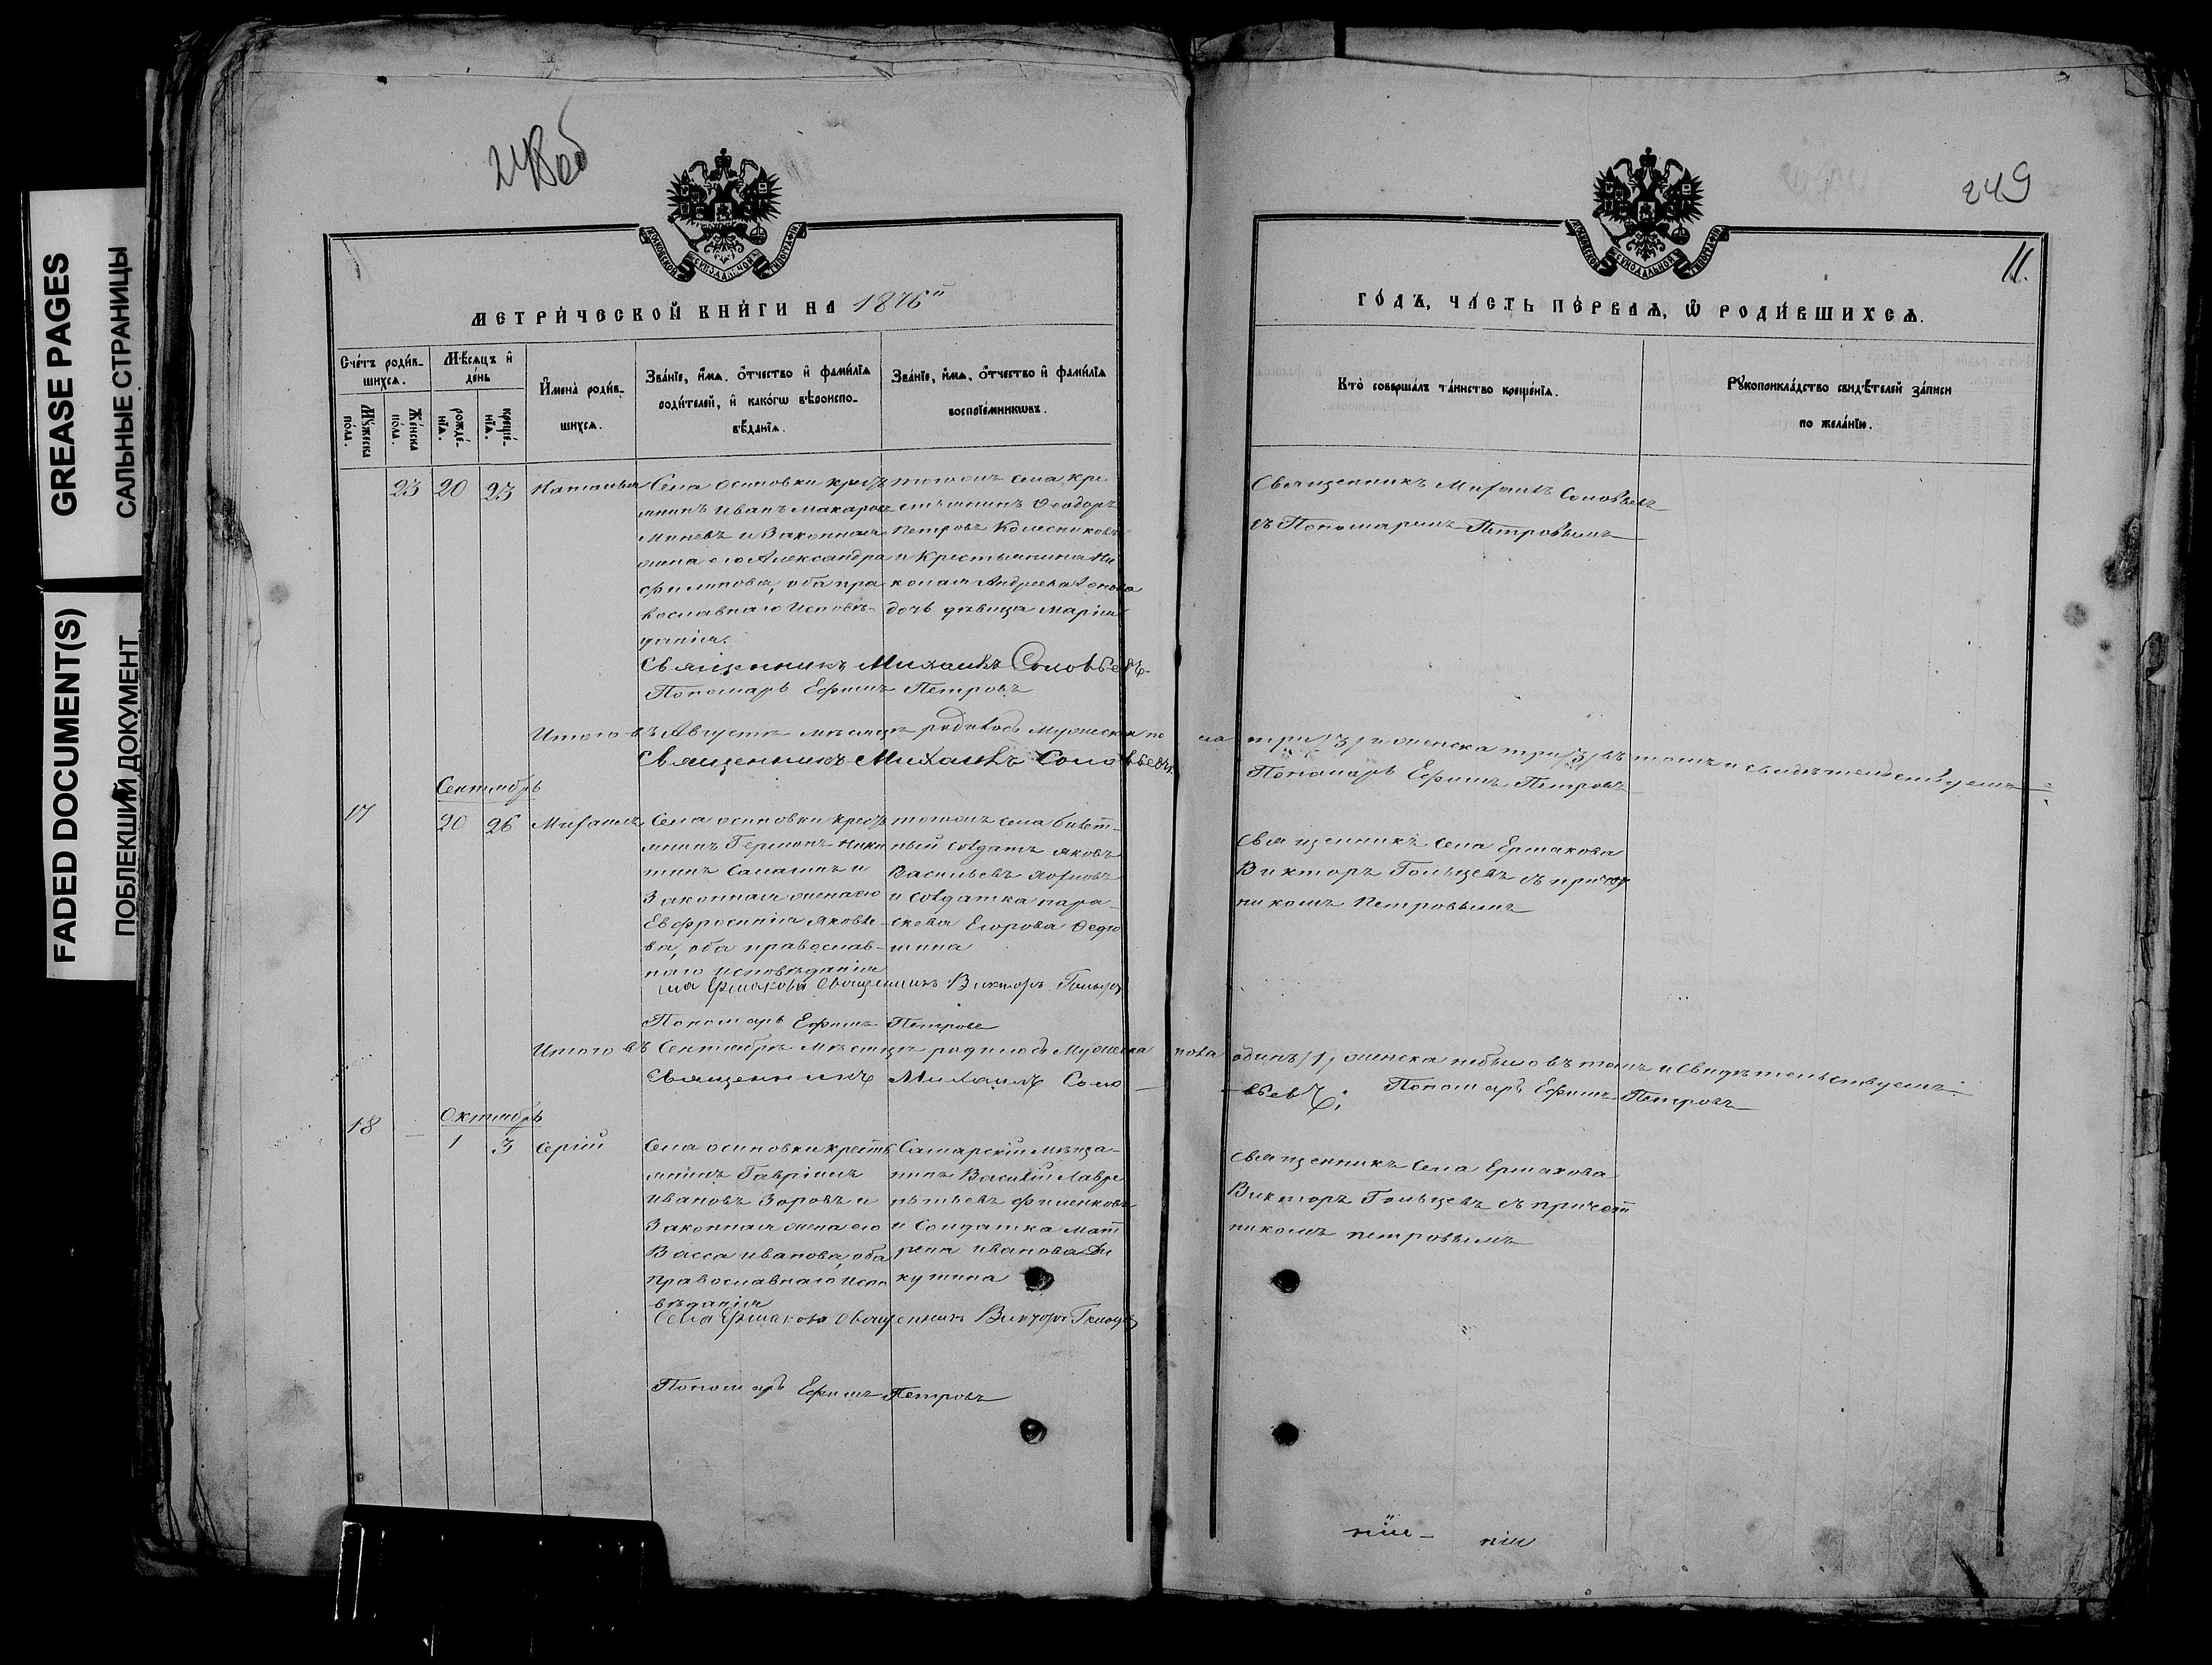 GREASE PAGES
САЛЬНЫЕ СТРАНИЦЫ
FADED DOCUMENT(S)
ПОБЛЕКШИЙ ДОКУМЕНТ
248об
МОСКОВСКОЙ СИНОДАЛЬНОЙ ТИПОГРАФІИ
МЕТРИ́ЧЕСКОЙ КНИ́ГИ НА 1876й
Сче́тъ роди́в-
шихсѧ.
Мѣ́сѧцъ и҆
де́нь
Мꙋ́жеска
по́ла.
Же́нска
по́ла.
рожде́-
нїѧ.
креще́-
нїѧ.
И҆мена̀ роди́в-
шихсѧ.
Зва́нїе, и҆́мѧ, ѻ҆́тчество и҆ фами́лїѧ
роди́телей, и҆ како́гѡ вѣроиспо-
вѣ́данїѧ.
Зва́нїе, и҆́мѧ, ѻ҆́тчество и҆ фами́лїѧ
воспрїе́мникѡвъ.
23 20 23 Наталья
Села осиновки кресть
янинъ Иванъ Макаровъ
Миневъ и Законная
жена его Александра
филипова, оба пра
вославнаго Исповѣ-
данія.
тогожъ села кре
стьянинъ Феодоръ
Петровъ Колесниковъ
и Крестьянина Ни
колая Андреева
дочь дѣвица Марія
Священникъ Михаилъ Соловьевъ
Пономарь Ефимъ Петровъ
Итого въ Августѣ мѣсяцѣ родилось Мужеска по
Священникъ Михаилъ Соловьевъ
Сентябрь
17 20 26 Михаилъ
Села осиновки кресть
янинъ Германъ Ники
тинъ Салагинъ и
Законная жена его
Евфросинія Яковле
ва, оба православ-
наго исповѣданія
тогожъ села билет-
ный солдатъ Яковъ
Васильевъ
и солдатка пара-
скева Егорова Федю
шина
села Ермакова Священникъ Викторъ Гольцевъ
Пономарь Ефимъ Петровъ
Итого въ Сентябрѣ Мѣсяцѣ родилось Мужеска
Священникъ Михаилъ Соло
Октябрь
18 — 1 3 Сергій
Села осиновки кресть
янинъ Гавріилъ
Ивановъ Зоровъ и
Законная жена его
Васса иванова, оба
православнаго испо
вѣданія
Самарскій мѣща-
нинъ Василій Лавре
нтьевъ филенковъ
и Солдатка Мат
рена иванова Ди
кушина
Села Ермакова Священникъ Викторъ Гольцевъ
Пономарь Ефимъ Петровъ
249
11.
МОСКОВСКОЙ СИНОДАЛЬНОЙ ТИПОГРАФІИ
ГО́ДЪ, ЧА́СТЬ ПЕ́РВАѦ, Ѽ РОДИ́ВШИХСѦ.
Кто̀ соверша́лъ та́инство креще́нїѧ.
Рꙋкоприкла́дство свидѣ́телей за́писи
по жела́нїю.
Священникъ Михаилъ Соловьевъ
съ Пономаремъ Петровымъ
ла три/3/ и женска три/3/ въ томъ и свидѣтельствуемъ
Пономарь Ефимъ Петровъ
Священникъ села Ермакова
Викторъ Гольцевъ съ причет
никомъ Петровымъ
пола одинъ/1/ женска небыло въ томъ и свидѣтельствуемъ:
вьевъ; Пономарь Ефимъ Петровъ
священникъ села Ермакова
Викторъ Гольцевъ съ причет
никомъ петровымъ